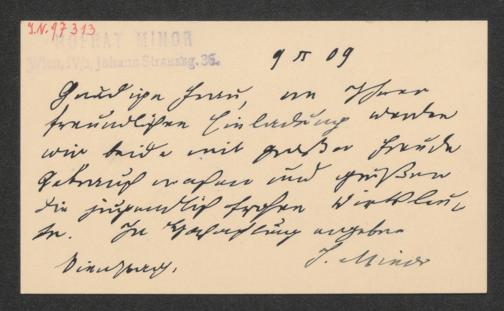 J.N. 97313
HOFRAT MINOR
Wien, IV/1, Johann Straussg. 36.
9 II 09
Gnädige Frau, von Ihrer
freundlichen Einladung werden
wir beide mit großer Freude
Gebrauch machen und grüßen
die jugendlich frohen Wirthleu-
te. In Hochachtung ergeben
J. Minor
Dienstag.